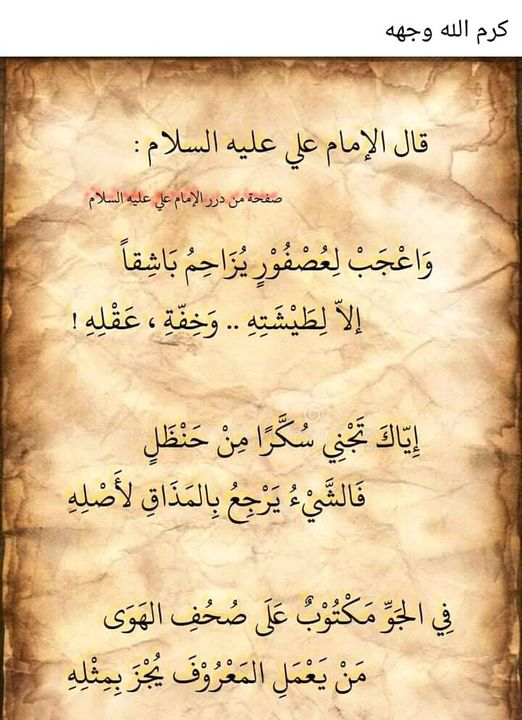 كرم الله وجهه
قال الإمام علي عليه السلام :
صفحة من درر الإمام علي عليه السلام
وَاعْجَبْ لِعُصْفُوْرٍ يُزَاحِمُ بَاشِقاً
إلاّ لِطَيْشَتِهِ .. وَخِفّةِ ، عَقْلِهِ !
إِيّاكَ تَجْنِي سُكَّرًا مِنْ حَنْظَلٍ
فَالشَّيْءُ يَرْجِعُ بِالمَذَاقِ لأَصْلِهِ
فِي الجَوِّ مَكْتُوْبٌ عَلَى صُحُفِ الهَوَى
مَنْ يَعْمَلِ المَعْرُوْفَ يُجْزَ بِمِثْلِهِ